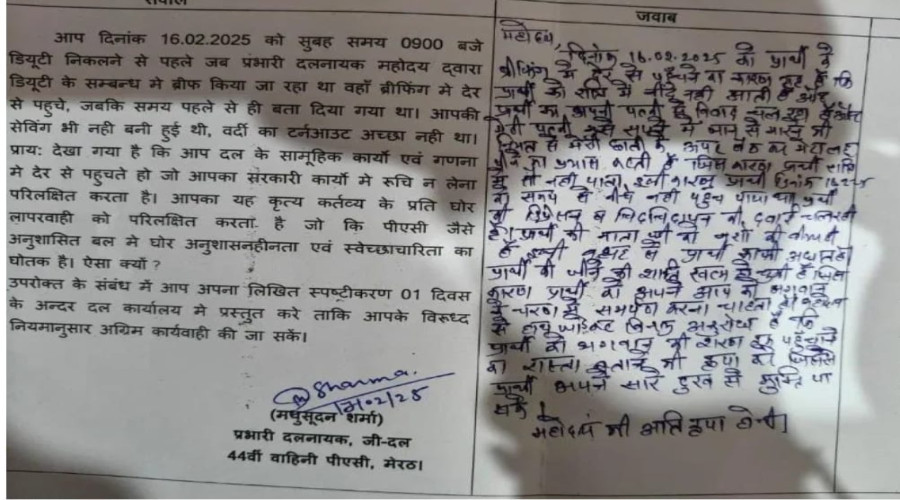 सवाल
जवाब
आप दिनांक 16.02.2025 को सुबह समय 0900 बजे
डियूटी निकलने से पहले जब प्रभारी दलनायक महोदय द्वारा
डियूटी के सम्बन्ध मे ब्रीफ किया जा रहा था वहाँ ब्रीफिंग मे देर
से पहुचे, जबकि समय पहले से ही बता दिया गया था। आपकी
सेविंग भी नही बनी हुई थी, वर्दी का टर्नआउट अच्छा नही था।
प्राय: देखा गया है कि आप दल के सामूहिक कार्यो एवं गणना
मे देर से पहुचते हो जो आपका सरकारी कार्यो मे रूचि न लेना
परिलक्षित करता है। आपका यह कृत्य कर्तव्य के प्रति घोर
लापरवाही को परिलक्षित करता है जो कि पीएसी जैसे
अनुशासित बल मे घोर अनुशासनहीनता एवं स्वेच्छाचारिता का
घोतक है। ऐसा क्यो ?
उपरोक्त के संबंध में आप अपना लिखित स्पष्टीकरण 01 दिवस
के अन्दर दल कार्यालय मे प्रस्तुत करे ताकि आपके विरूध्द
नियमानुसार अग्रिम कार्यवाही की जा सकें।
Sharma
17/02/25
(मधुसूदन शर्मा)
प्रभारी दलनायक, जी-दल
44वीं वाहिनी पीएसी, मेरठ।
महोदय,
दिनांक 16.02.2025 को प्रार्थी के
ब्रीफिंग में देर से पहुँचने का कारण यह है कि
प्रार्थी को रात्रि में नींद नही आती है
प्रार्थी का अपनी पत्नी से विवाद चल रहा है
पत्नी मुझे सपने मे जान से मारने की
मेरी छाती के ऊपर बैठ कर मेरा
का प्रयास करती है जिस कारण प्रार्थी रात्रि
मे सो नही पाता इसी कारण प्रार्थी दिनांक 16-2-25
को समय से नीचे नही पहुच पाया था प्रार्थी
की डिप्रेशन व चिडचिडापन की दवाई चल रही
है। प्रार्थी की माता जी को
प्रार्थी की जीने की
कारण प्रार्थी को अपने आप को भगवान
के चरणो मे समर्पण करना चाहता है
से अनुरोध है कि
प्रार्थी को भगवान की शरण
का रास्ता बताने की कृपा करे जिससे
प्रार्थी अपने सारे दुख से मुक्ति पा
सके।
महोदय की अति कृपा होगी